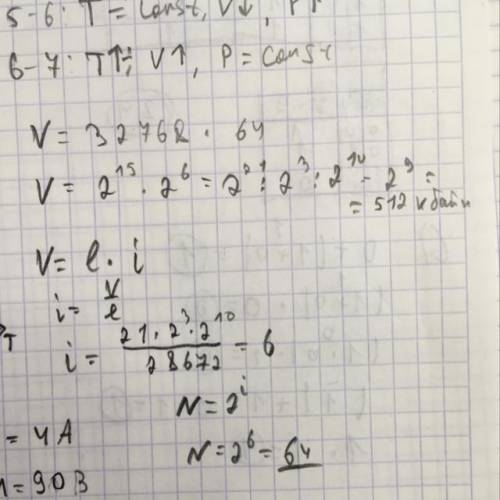 5-6: T = const, V↓, P↑
6-7: T↑; V↑, P = const
V = 32768 · 64
V = 2¹⁵ · 2⁶ = 2²¹ : 2³ : 2¹⁰ = 2⁹ =
= 512 кбайт
V = l · i
i = V/l
i = 21·2³·2¹⁰/28672 = 6
N = 2ⁱ
= 4A
N = 2⁶ = 64
= 90B